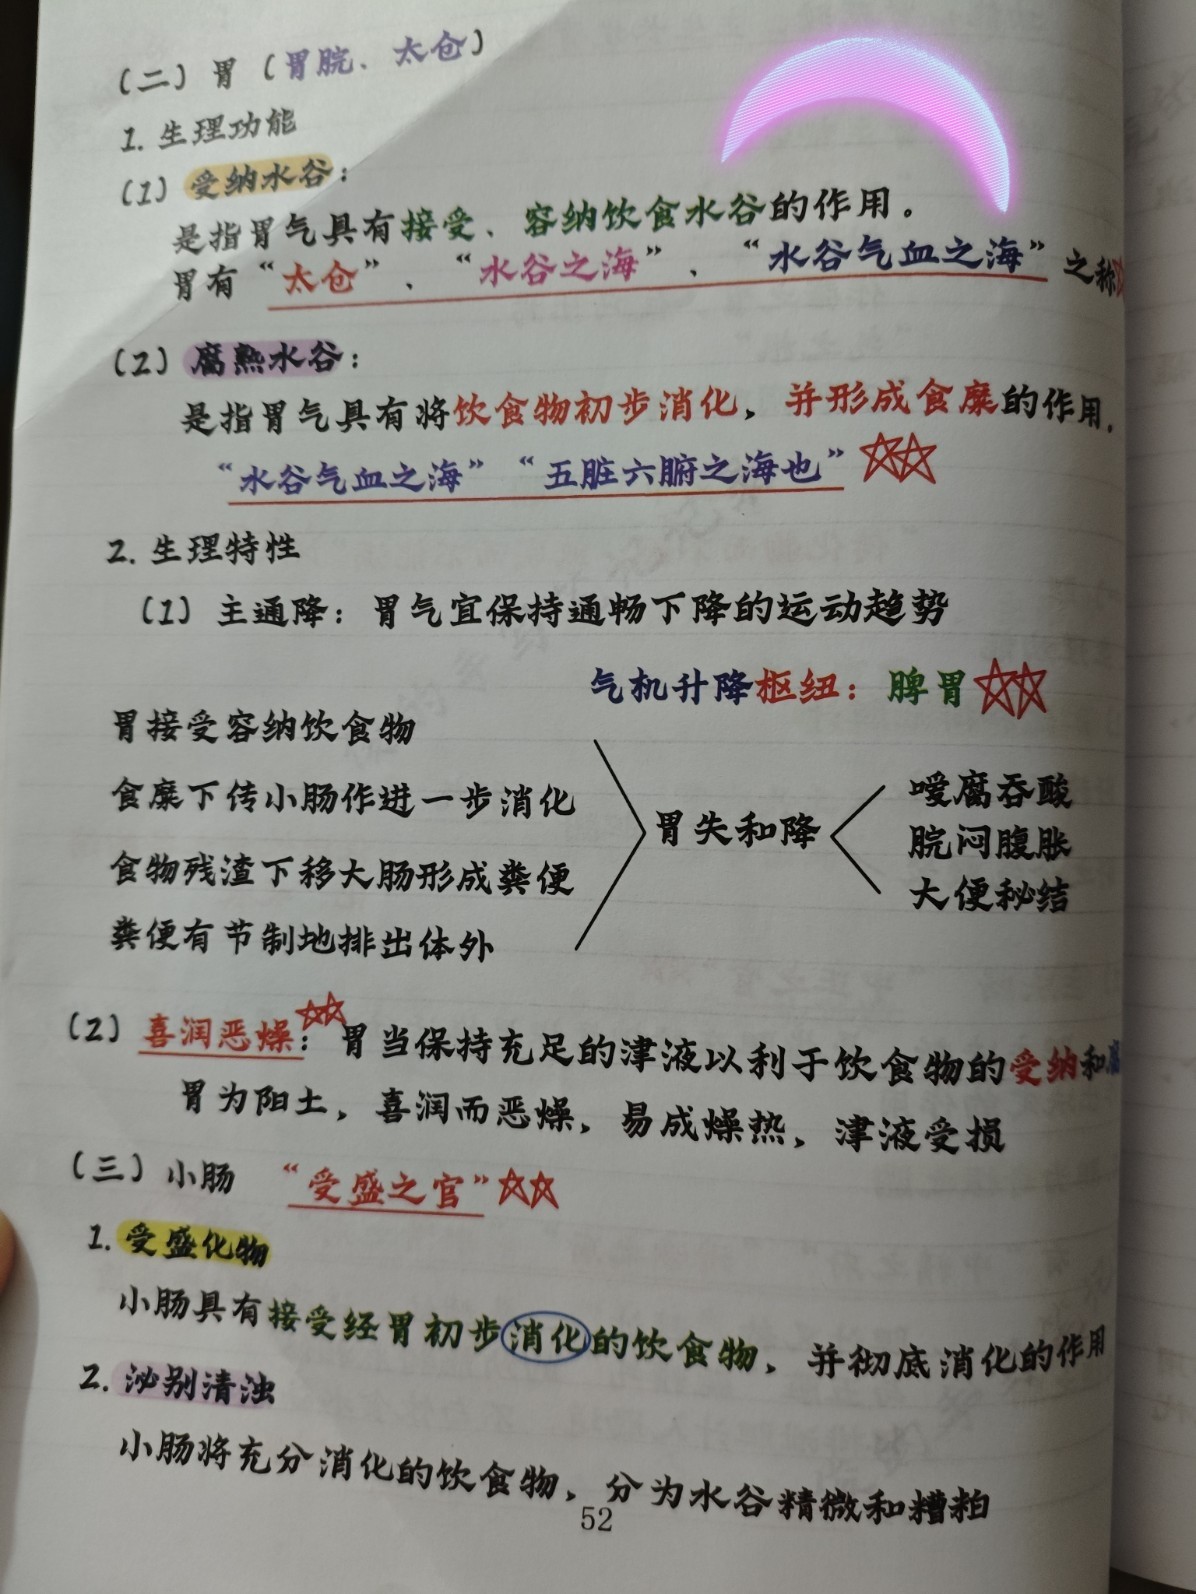 (二) 胃 (胃脘、太仓)
1. 生理功能
(1) 受纳水谷:
是指胃气具有接受、容纳饮食水谷的作用。
胃有“太仓”、“水谷之海”、“水谷气血之海”之称
(2) 腐熟水谷:
是指胃气具有将饮食物初步消化, 并形成食糜的作用.
“水谷气血之海” “五脏六腑之海也”
2. 生理特性
(1) 主通降: 胃气宜保持通畅下降的运动趋势
气机升降枢纽: 脾胃
胃接受容纳饮食物
食糜下传小肠作进一步消化
食物残渣下移大肠形成粪便
粪便有节制地排出体外
胃失和降
嗳腐吞酸
脘闷腹胀
大便秘结
(2) 喜润恶燥: 胃当保持充足的津液以利于饮食物的受纳和
胃为阳土, 喜润而恶燥, 易成燥热, 津液受损
(三) 小肠 “受盛之官”
1. 受盛化物
小肠具有接受经胃初步消化的饮食物, 并彻底消化的作用
2. 泌别清浊
小肠将充分消化的饮食物, 分为水谷精微和糟粕
52